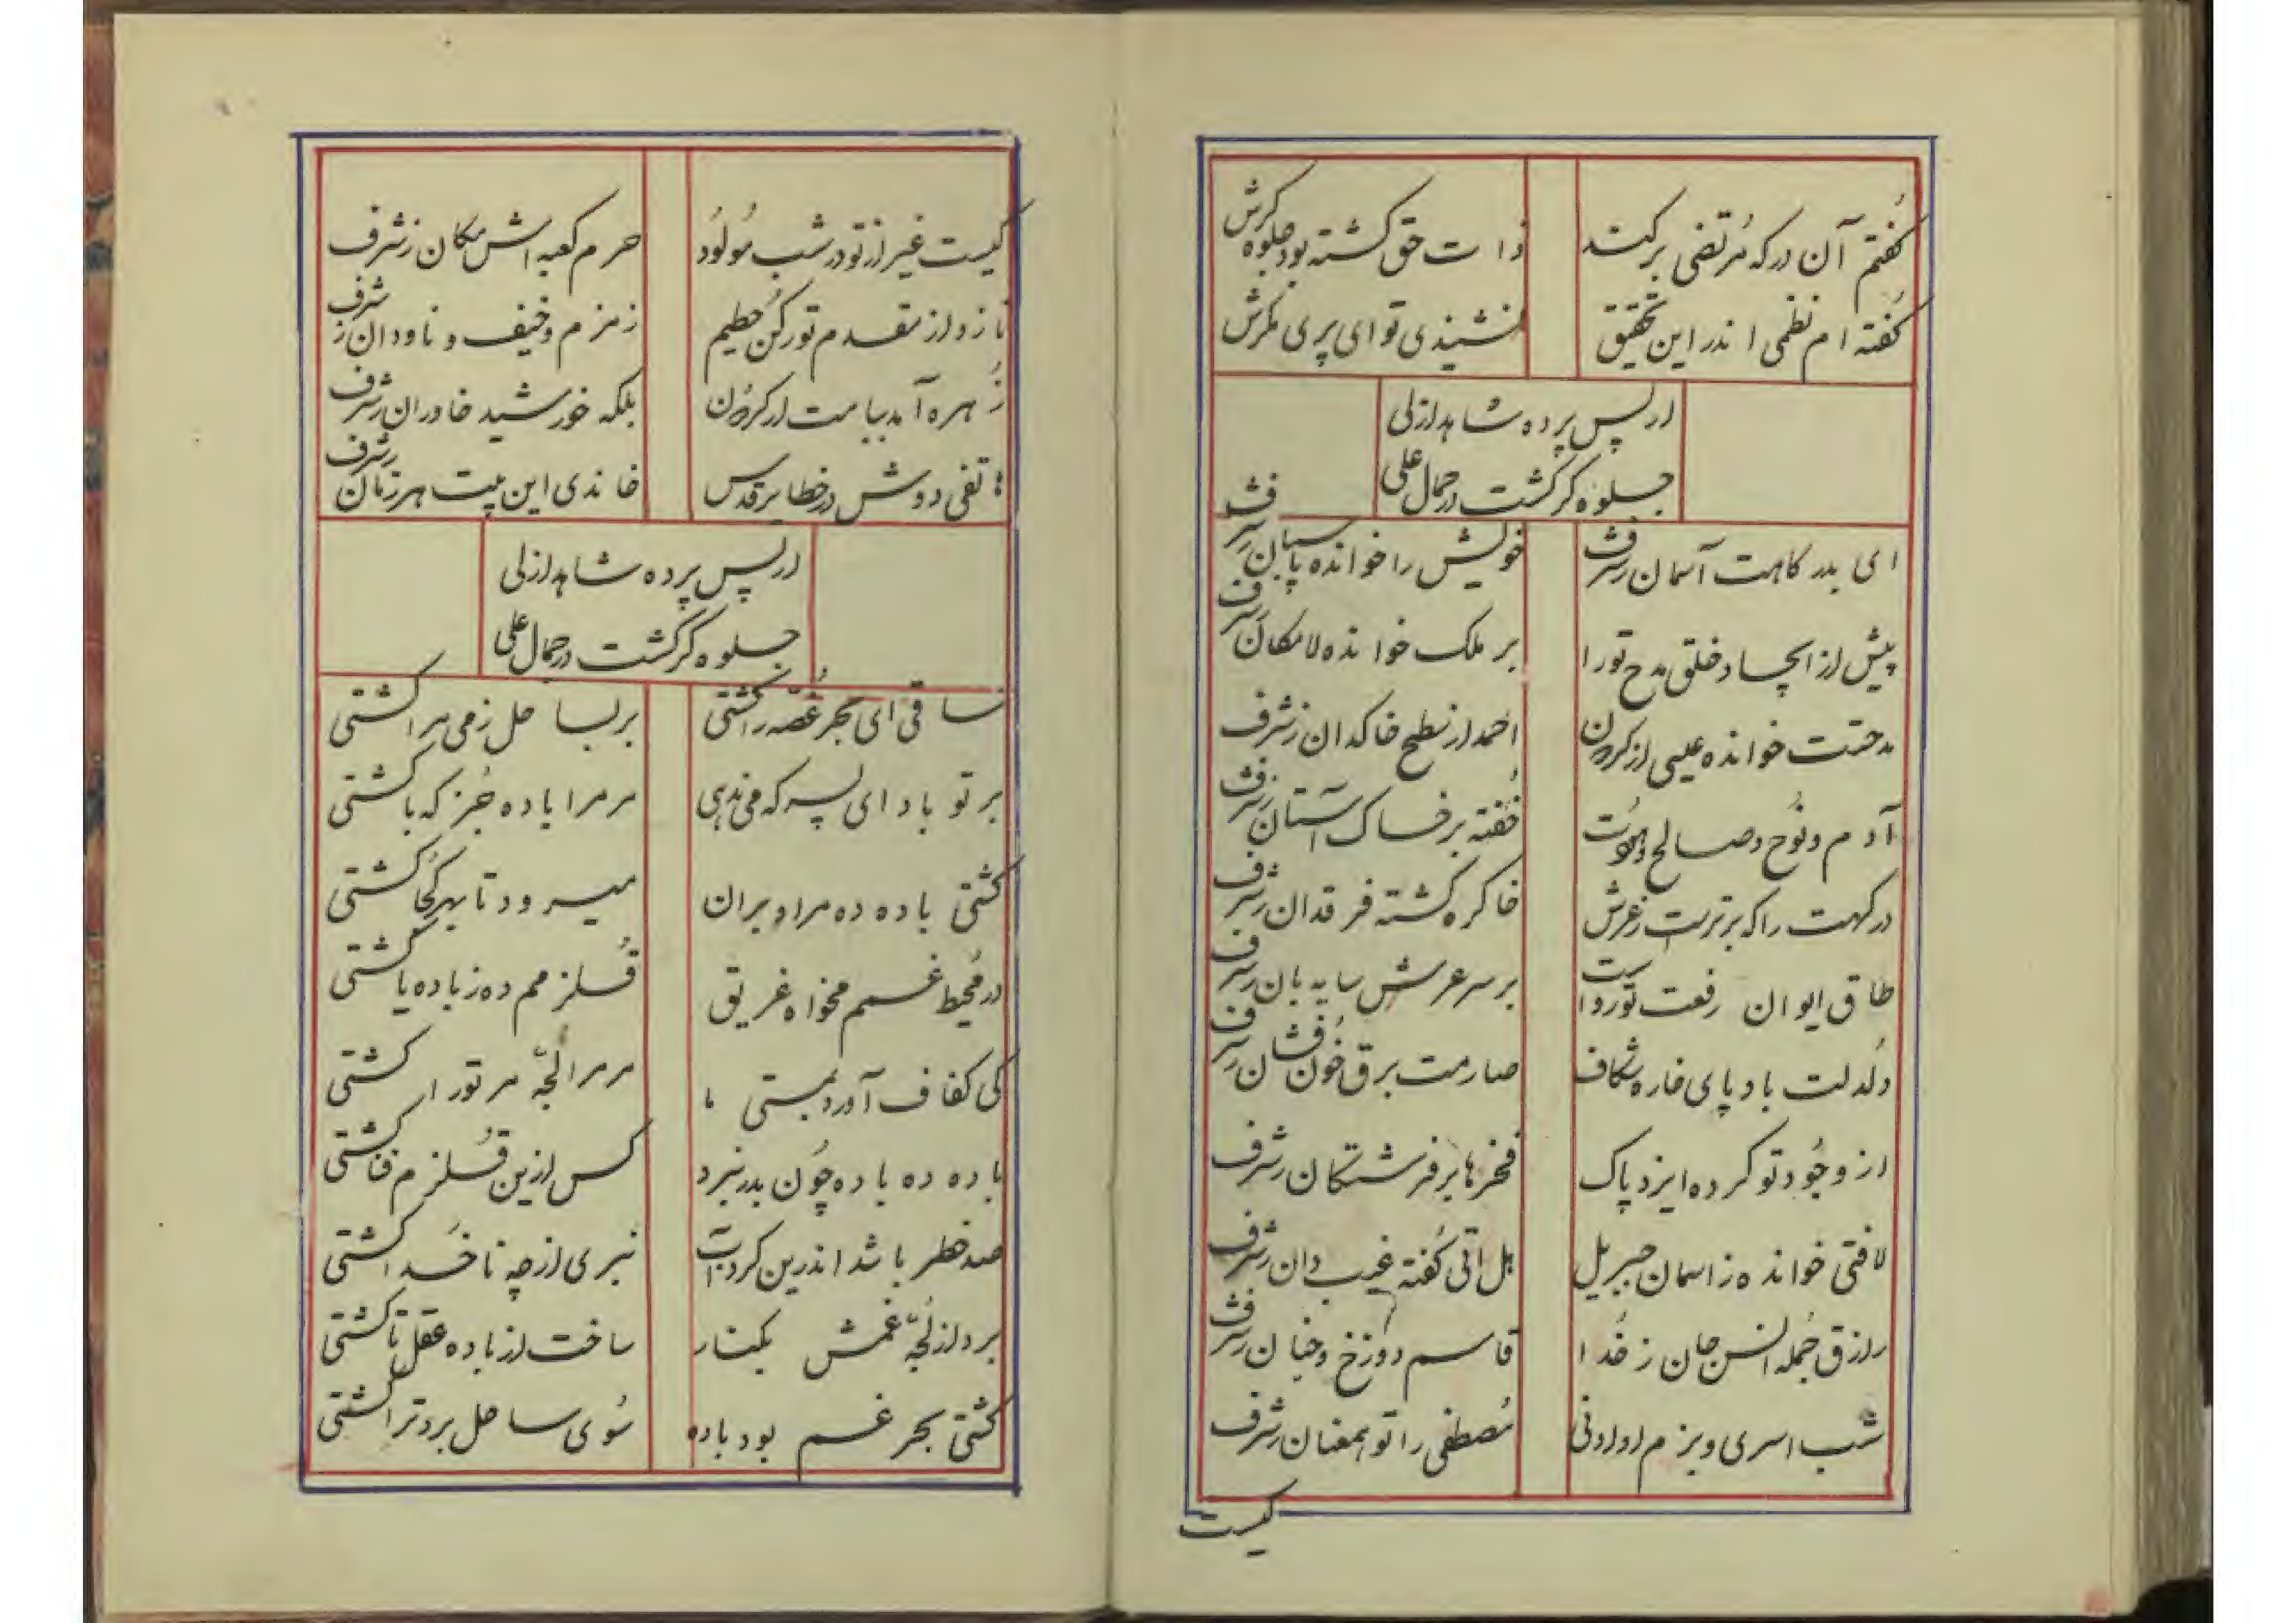 گفتم آن در که مُرتضی برکند ذات حق گشته بود جلوه گرش
گفته ام نظمی اندر این تحقیق نشنیدی تو ای پری مگرش
از پس پرده شاهد ازلی
جلوه گر گشت در جمال علی
ای بدرگاهت آسمان ز شرف خویش را خوانده پاسبان ز شرف
پیش از ایجاد خلق مدح تو را بر ملک خوانده لامکان ز شرف
مدحتت خوانده عیسی از گردون احمد از سطح خاکدان ز شرف
آدم و نُوح و صالح و هُود خُفته بر خاک آستان ز شرف
درگهت را که برترست ز عرش خاکره گشته فرقدان ز شرف
طاق ایوان رفعت تو رواست بر سر عرش سایه بان ز شرف
دُلدلت باد پای خاره شکاف صارمت برق خُون فشان ز شرف
از وجُود تو کرده ایزد پاک فخرها بر فرشتگان ز شرف
لافتی خوانده ز اسمان جبریل هل اتی گُفته غیب دان ز شرف
رازق جُمله انس و جان ز خُدا قاسم دوزخ و جنان ز شرف
شب اسری و بزم او ادنی مُصطفی را تو همعنان ز شرف
کیست
کیست غیر از تو در شب مُولُود حرم کعبه اش مکان ز شرف
نازد از مقدم تو رکن حطیم زمزم و خیف و ناودان ز شرف
زُهره آمد ببامت از گردون بلکه خورشید خاوران ز شرف
هاتفی دوش در خطایر قدس خاندی این بیت هر زمان ز شرف
از پس پرده شاهد ازلی
جلوه گر گشت در جمال علی
ساقی ای بحر غُصّه را کشتی بر بساحل ز می مرا کشتی
بر تو باد ای پسر که می ندهی مر مرا باده جُز که با کشتی
کشتی باده ده مرا و بران میرود تا بهر کُجا کشتی
در مُحیط غمم مخواه غریق قُلزمم ده ز باده یا کشتی
کی کفاف آورد بمستی ما مر مرا لجّه مر تو را کشتی
باده ده باده چُون بدر نبرد کس ازین قُلزم فنا کشتی
صد خطر باشد اندرین گرداب نبری از چه ناخُدا کشتی
برد از لُجّه غمش بکنار ساخت از باده عقل تا کشتی
کشتی بحر غم بود باده سُوی ساحل برد ترا کشتی